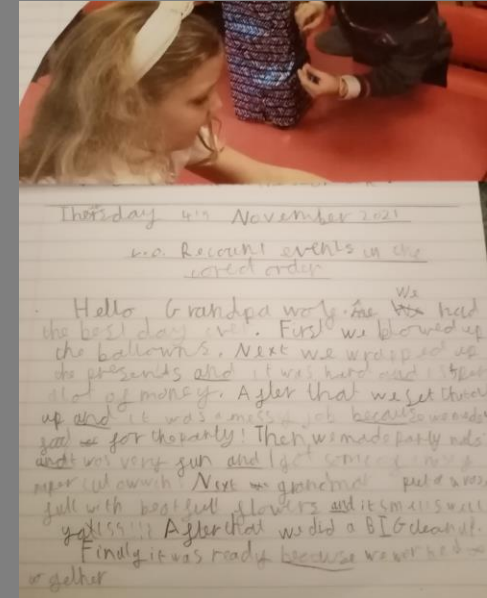 Thersday 4th November 2021
L.O. Recount events in the
corect order
Hello Grandpa wolf. We had
the best day ever. First we blowed up
the ballowns. Next we wrapped up
the presents and it was hard and I spent
alot of money. After that we set
up and it was a messy job because we made
food for the party! Then we made party
and it was very fun and I got some
Next grandma put a
full with beatfull flowers and it smells well
After that we did a BIG clean up.
Findly it was ready because we worked
together